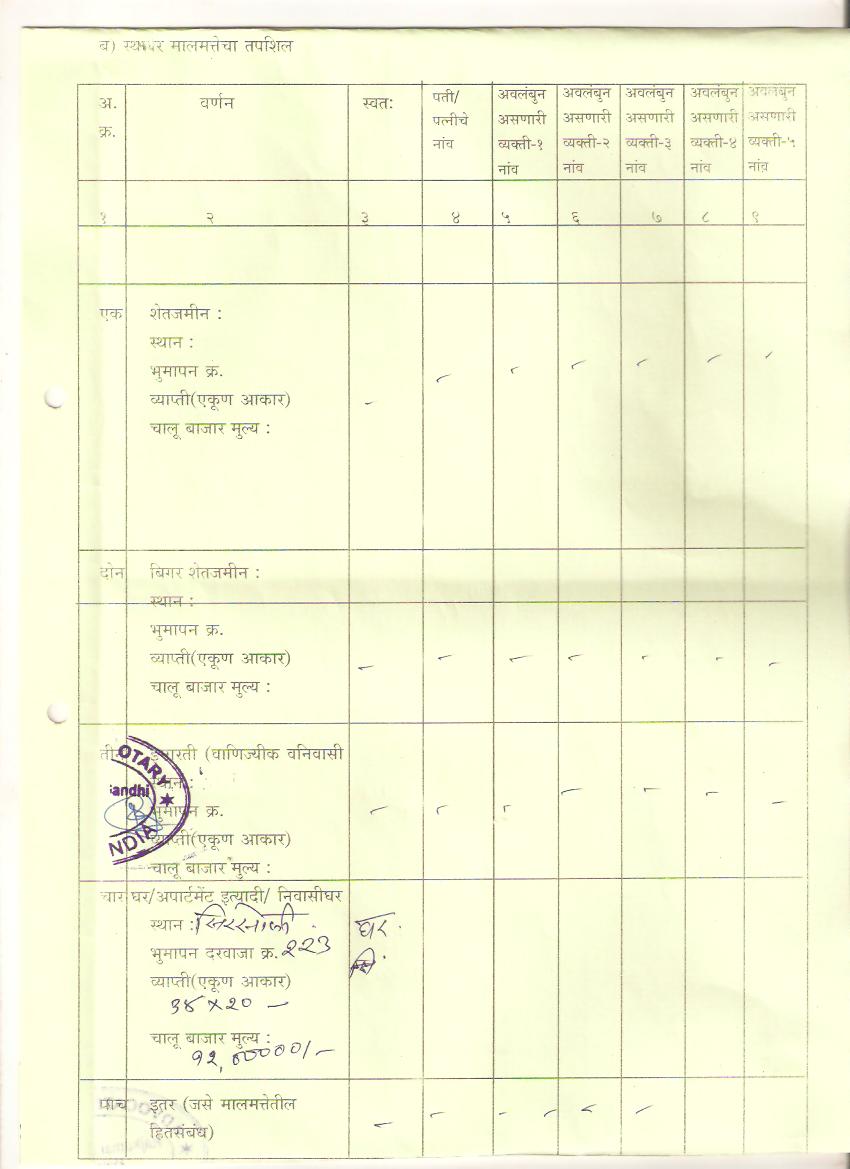 ब) स्थावर मालमत्तेचा तपशिल
अ. क्र. वर्णन स्वत: पती/ पत्नीचे नांव अवलंबुन असणारी व्यक्ती-१ नांव अवलंबुन असणारी व्यक्ती-२ नांव अवलंबुन असणारी व्यक्ती-३ नांव अवलंबुन असणारी व्यक्ती-४ नांव अवलंबुन असणारी व्यक्ती-५ नांव
१ २ ३ ४ ५ ६ ७ ८ ९
एक शेतजमीन :
स्थान :
भुमापन क्र.
व्याप्ती(एकूण आकार)
चालू बाजार मुल्य :
दोन बिगर शेतजमीन :
स्थान :
भुमापन क्र.
व्याप्ती(एकूण आकार)
चालू बाजार मुल्य :
तीन इमारती (वाणिज्यीक वनिवासी
स्थान :
भुमापन क्र.
व्याप्ती(एकूण आकार)
चालू बाजार मुल्य :
OTARY
andhi
NDIA
चार घर/अपार्टमेंट इत्यादी/ निवासीघर
स्थान : घर
भुमापन दरवाजा क्र. २२३
व्याप्ती(एकूण आकार)
३४ x २०
चालू बाजार मुल्य :
१२,०००००/-
पाच इतर (जसे मालमत्तेतील
हितसंबंध)